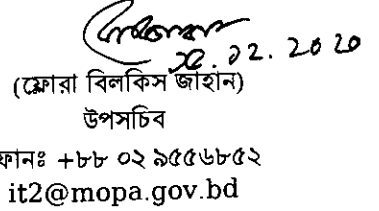 (ফ্লোরা বিলকিস জাহান)
উপসচিব
ফানঃ +৮৮ ০২ ৯৫৫৬৮৫২
it2@mopa.gov.bd